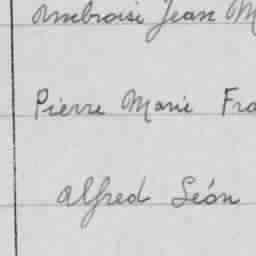 Ambroise Jean M
Pierre Marie Fra
Alfred Léón